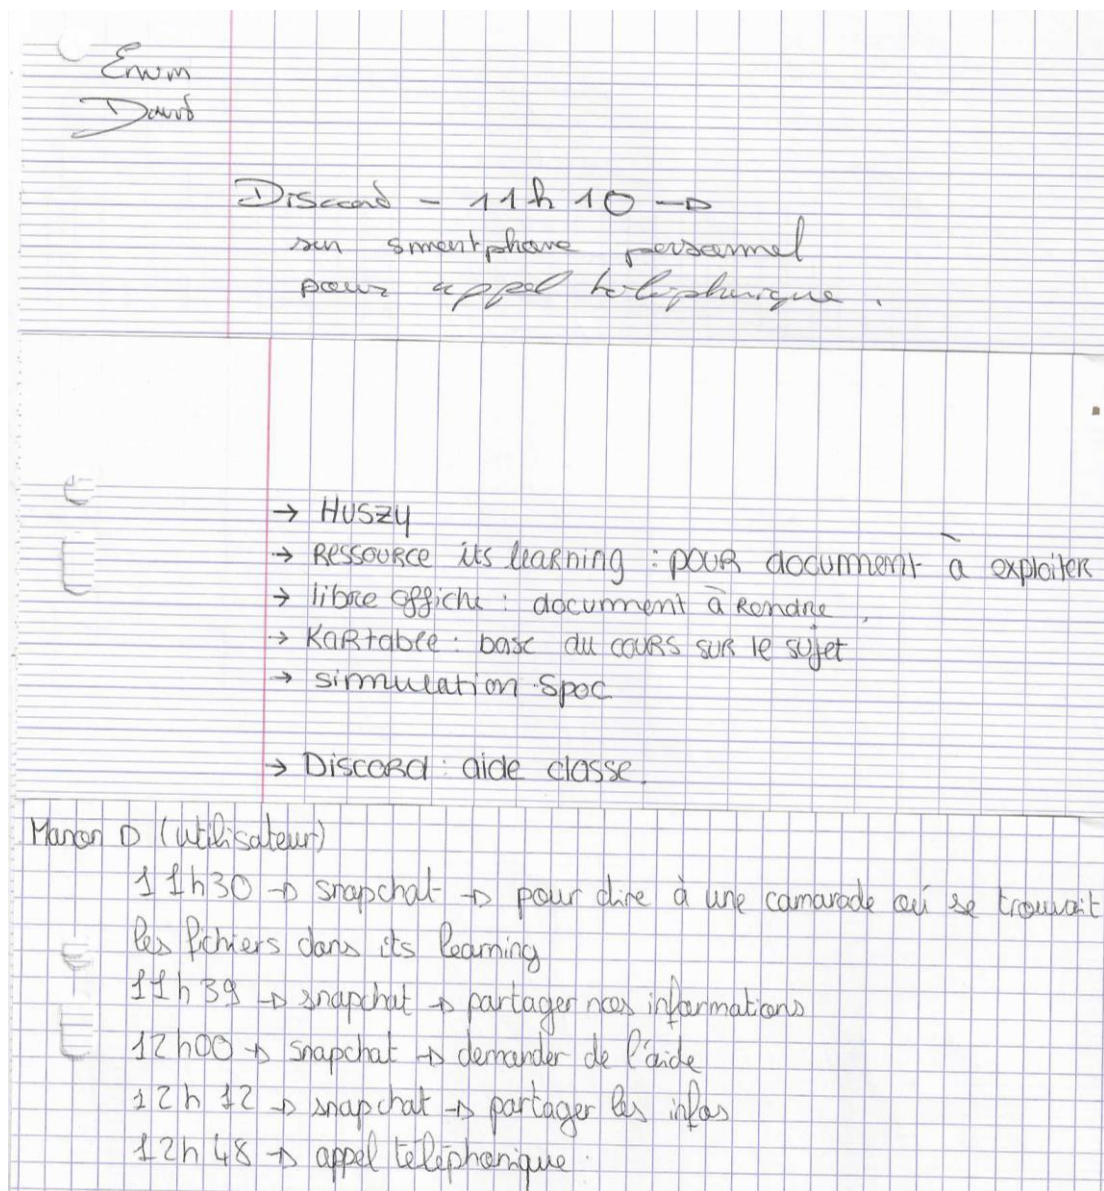 Erwin
David
Discord - 11h10 →
sur smartphone personnel
pour appel téléphonique.
→ HUSZY
→ Ressource its learning : pour document à exploiter
→ libre offiche : document à rendre
→ Kartable : base du cours sur le sujet
→ simulation spoc
→ Discord : aide classe.
Manon D (utilisateur)
11h30 → snapchat → pour dire à une camarade où se trouvait
les fichiers dans its learning
11h39 → snapchat → partager nos informations
12h00 → snapchat → demander de l'aide
12h12 → snapchat → partager les infos
12h48 → appel téléphonique.